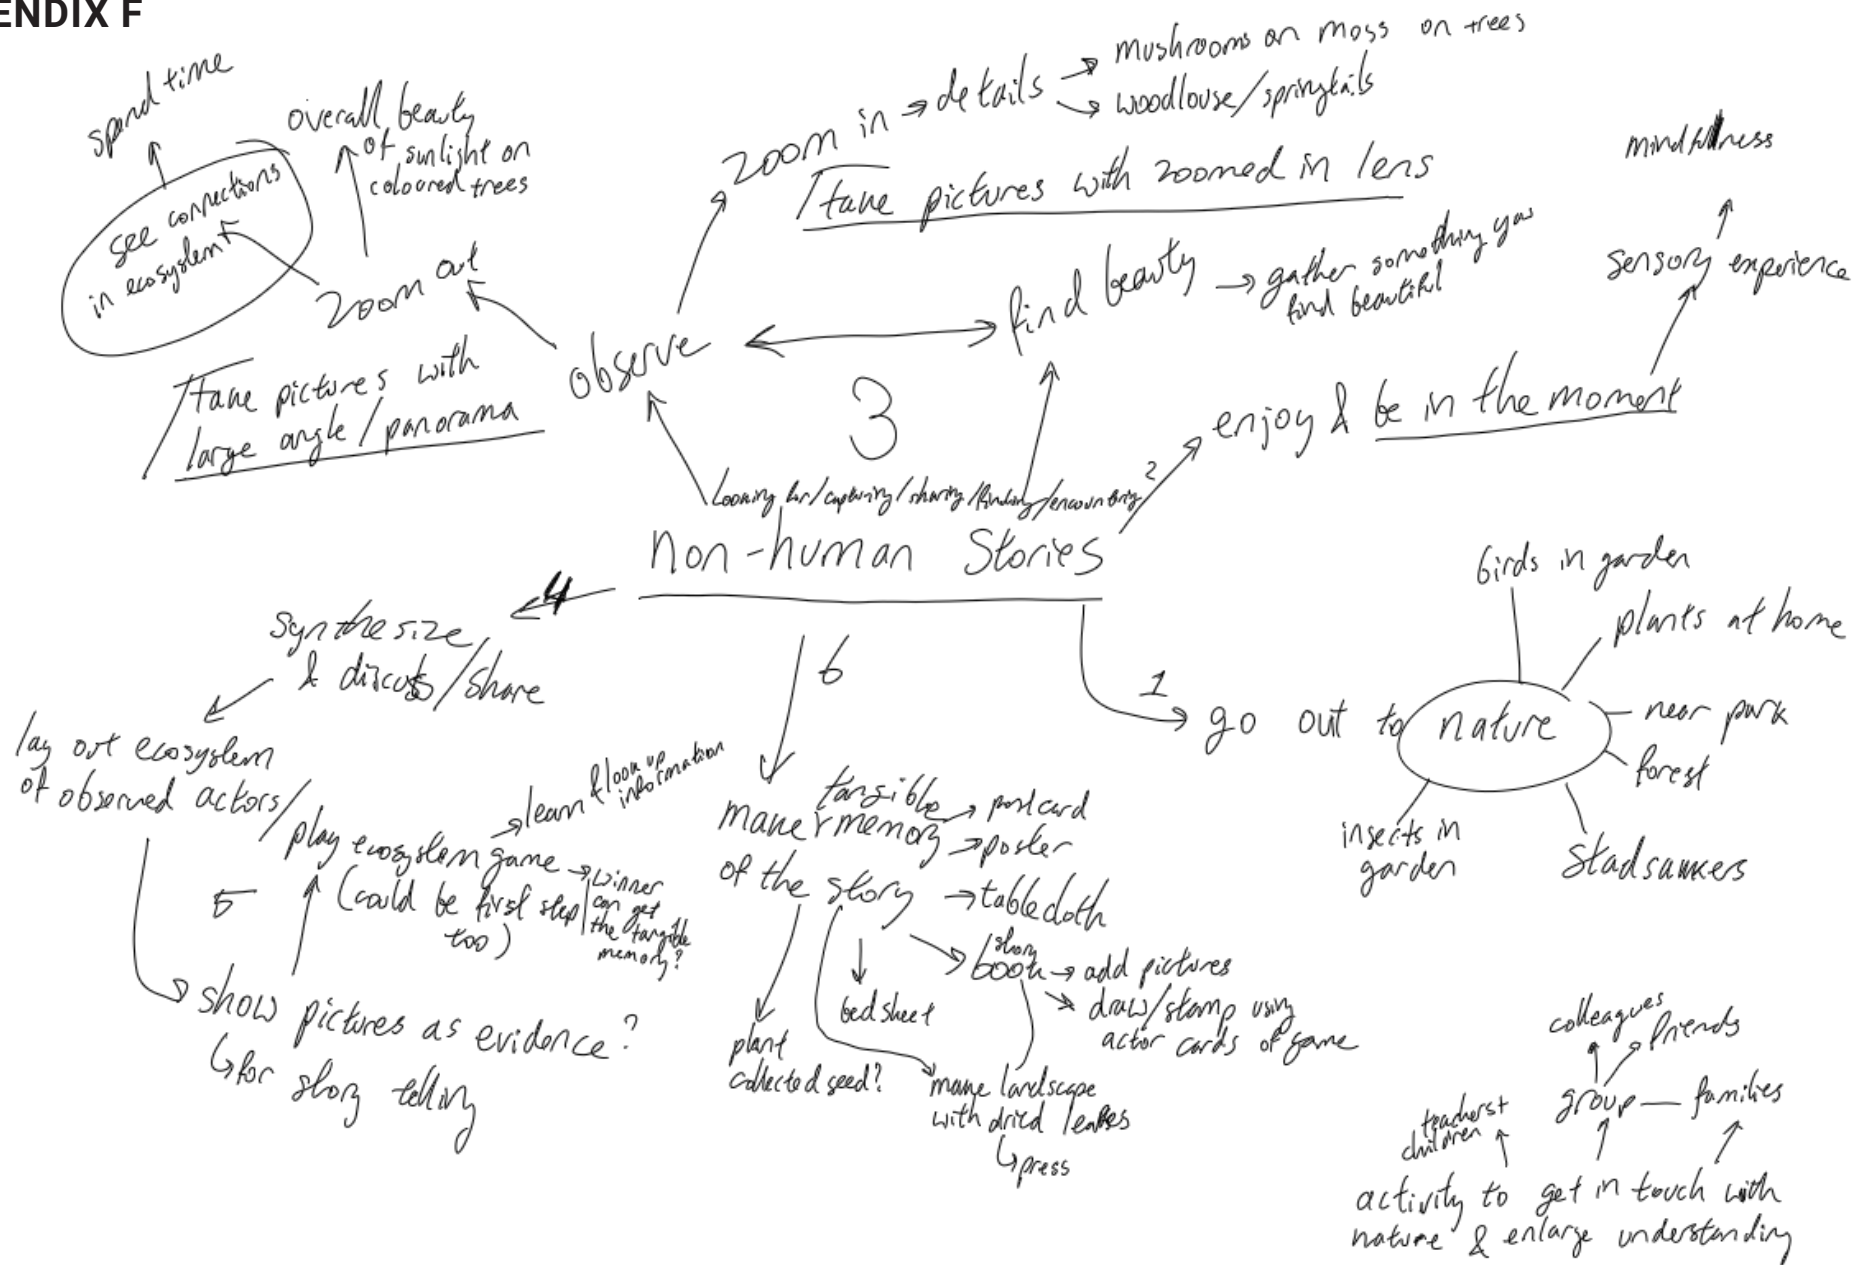 ENDIX F
spend time
overall beauty
of sunlight on
coloured trees
see connections
in ecosystem
zoom out
/take pictures with
large angle/panorama
zoom in → details → mushrooms on moss on trees
→ woodlouse/springtails
/take pictures with zoomed in lens
observe
find beauty → gather something you
find beautiful
mindfullness
sensory experience
enjoy & be in the moment
3
2
Looking for/capturing/sharing/finding/encountering
Non-human Stories
4
synthesize
& discuss/share
lay out ecosystem
of observed actors/
play ecosystem game → winner
can get
the tangible
memory?
(could be first step
too)
→ learn & look up
information
5
show pictures as evidence?
↳ for story telling
6
make tangible memory
of the story
→ postcard
→ poster
→ tablecloth
story
book → add pictures
→ draw/stamp using
actor cards of game
bedsheet
plant
collected seed?
make landscape
with dried leaves
↳ press
1
go out to nature
birds in garden
plants at home
near park
forest
insects in
garden
colleagues
friends
group — families
teachers+
children
activity to get in touch with
nature & enlarge understanding